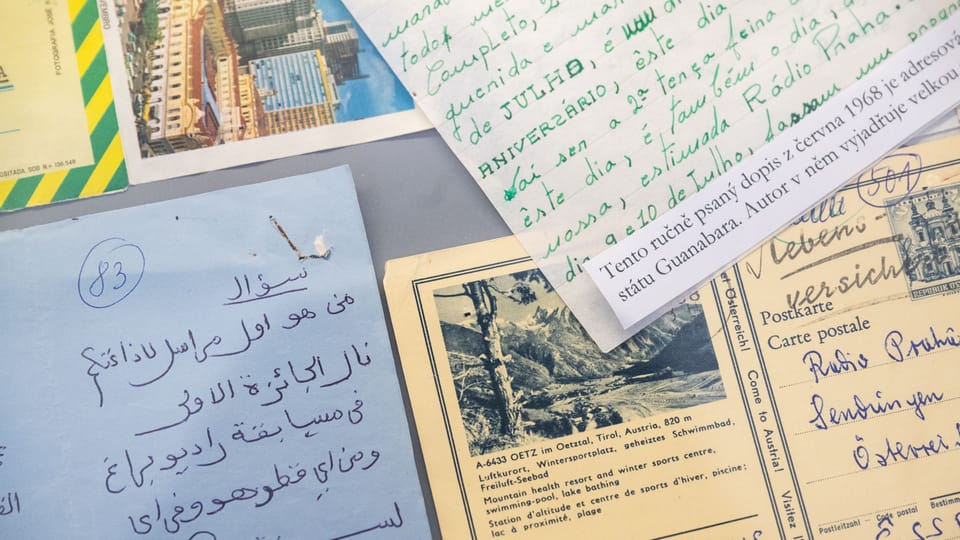 FOTOGRAFIA JOSÉ
OSITADA SOB N.º 136.549
todo
Completo, 2
querida e
de JULHO, é dia
ANIVERZÁRIO, êste
Vai ser a 2ª tença feina
êste dia, é também o dia,
nossa, estimada Rádio Praha.
dia 9 e 10 de Julho,
Tento ručně psaný dopis z června 1968 je adresová
státu Guanabara. Autor v něm vyjadřuje velkou
83
سؤال
من هو اول مراسل لاذاعتكم
نال الجائزة الاولى
في مسابقة راديو براغ
ومن اي قطر هو وفي اي
A-6433 OETZ im Oetztal, Tirol, Austria, 820 m
Luftkurort, Wintersportplatz, geheiztes Schwimmbad,
Freiluft-Seebad
Mountain health resort and winter sports centre,
swimming-pool, lake bathing
Station d'altitude et centre de sports d'hiver, piscine;
lac à proximité, plage
r Österreich! Come to Austria! Visitez
501
Lebens
versich
REPUBLIK ÖST
Postkarte
Carte postale
Radio Prah
Sendungen
Österrei
Postleitzahl - Code postal Bestimm